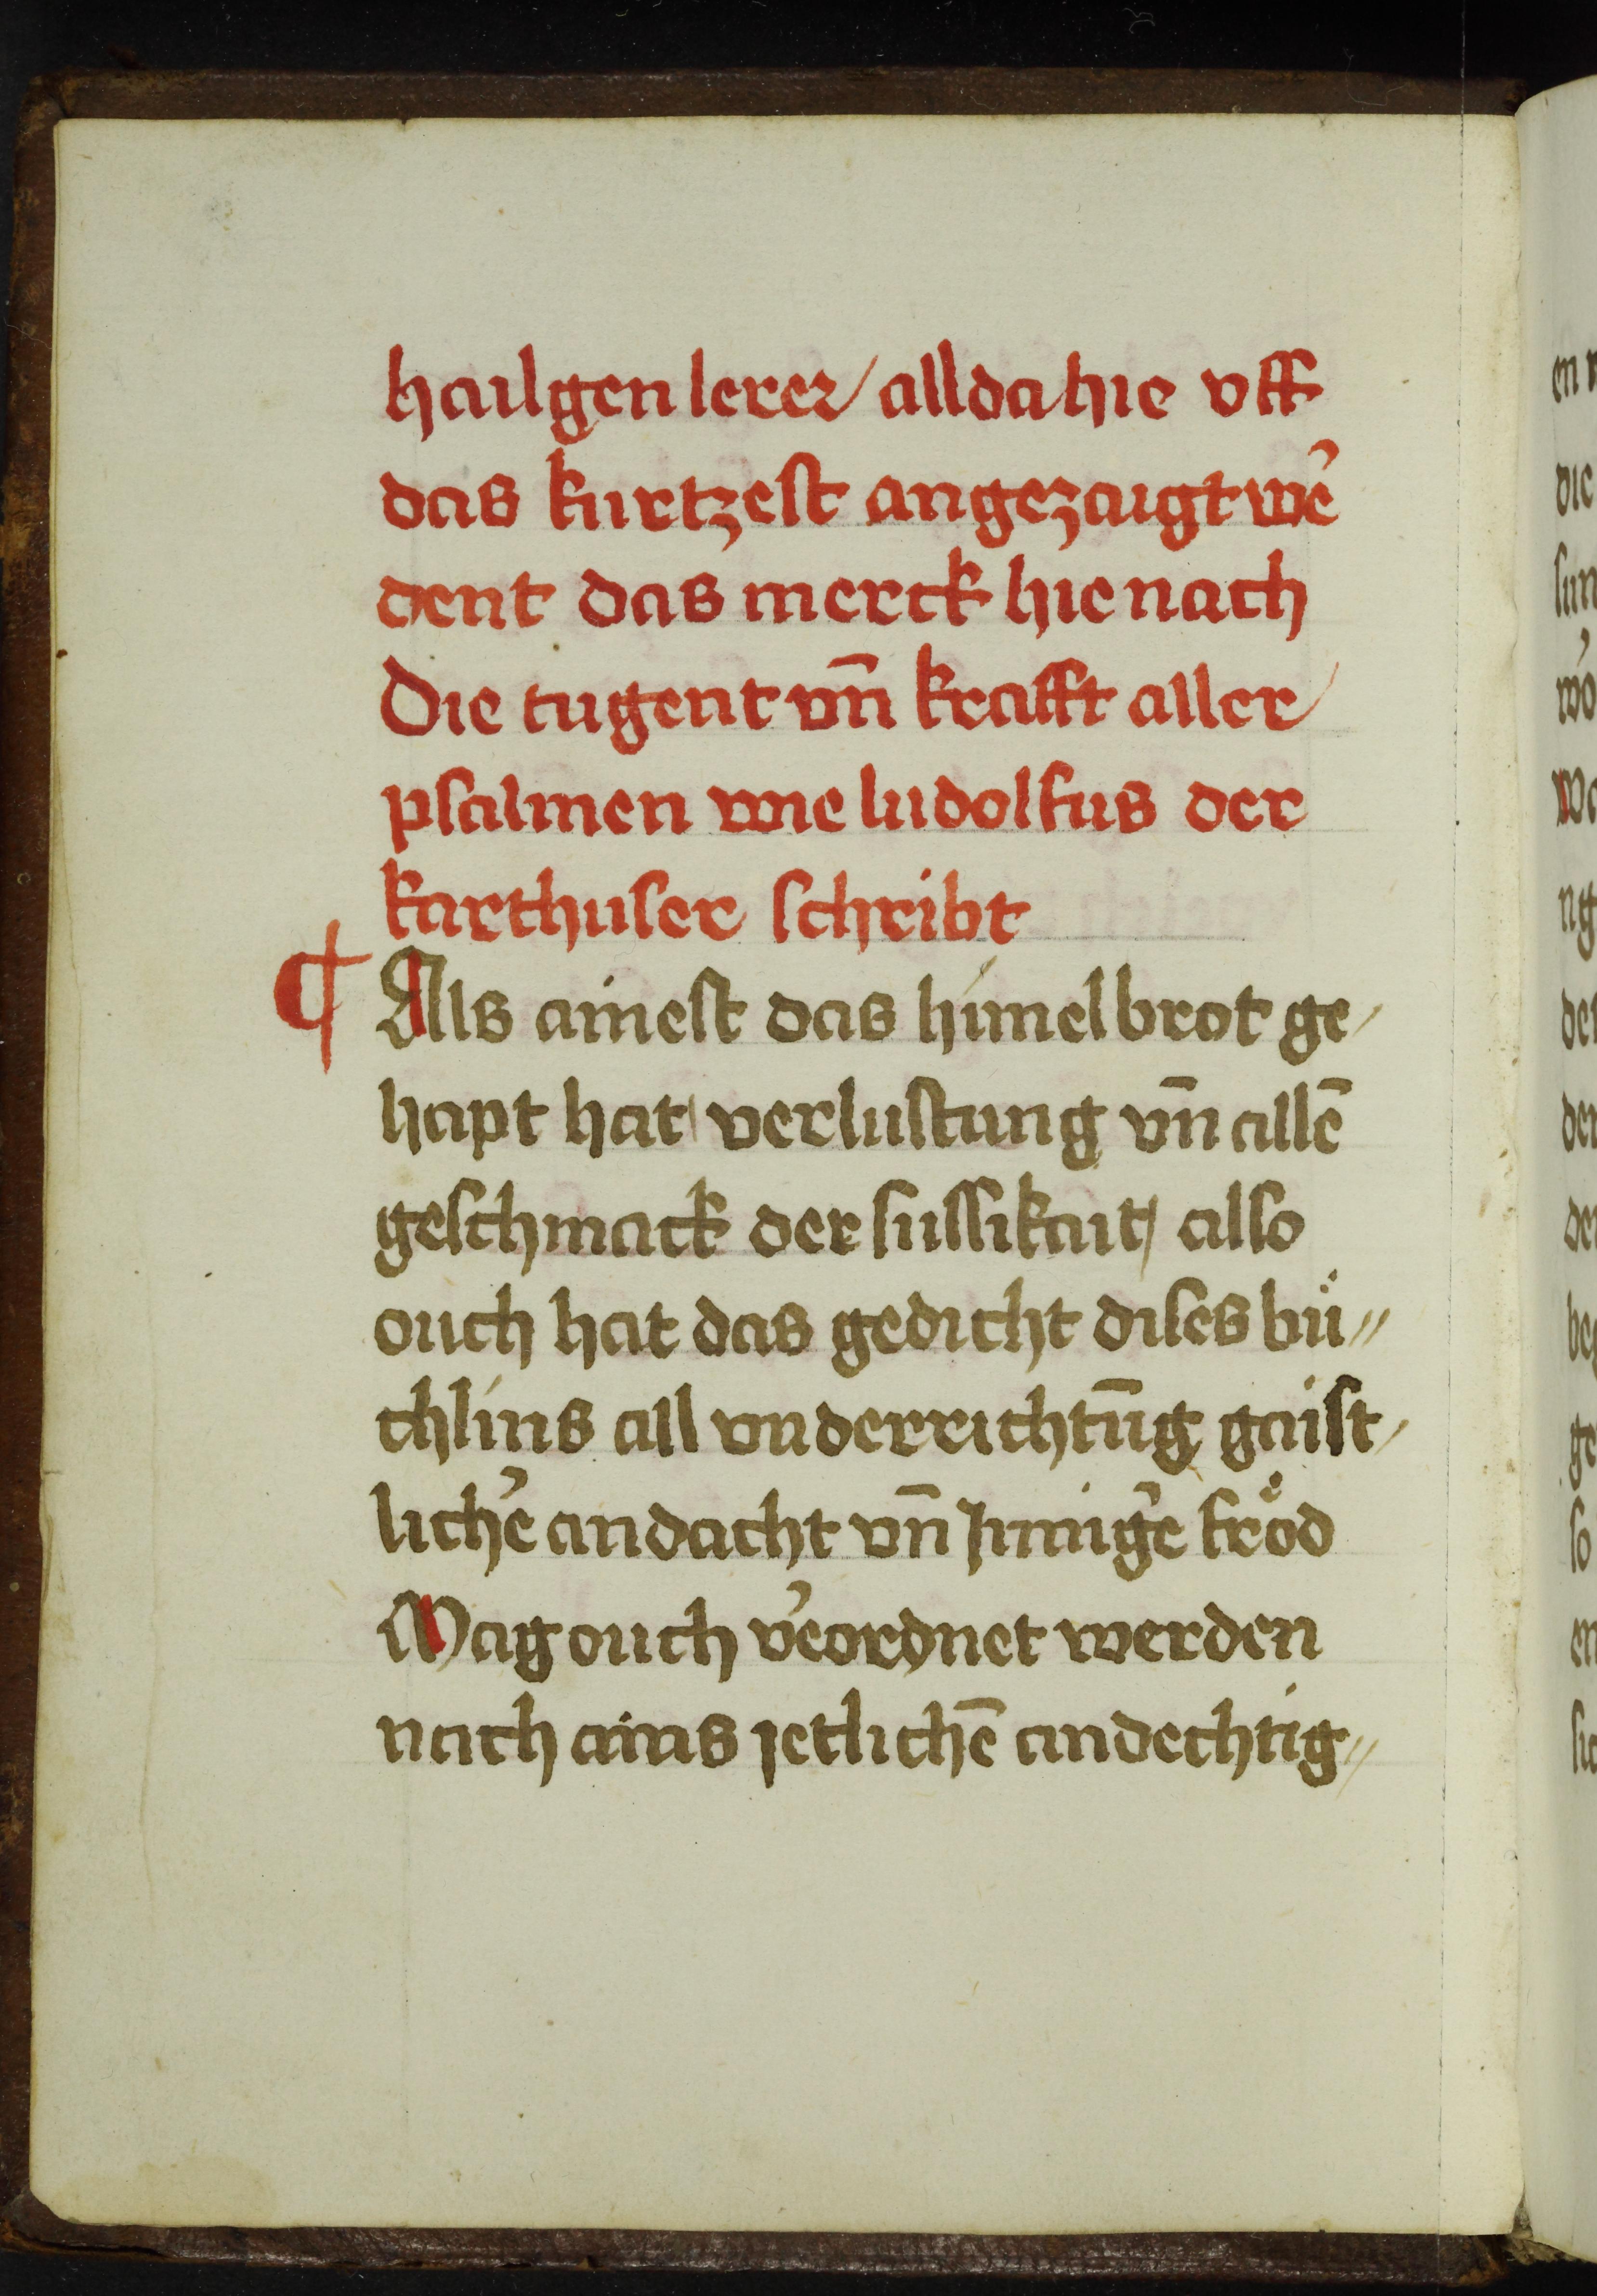 hailgen lerer / allda hie vff
das kurtzest angezaigt we᷒
dent das merck hie nach
Die tugent vn̄ krafft aller /
psalmen wie ludolfus der
karthuser schribt
¶ Als ainest das himelbrot ge/
hapt hat / verlustung vn̄ allē
geschmack der sussikait / also
ouch hat das gedicht dises bu̍̈//
chlins all vnderrichtūg gaist/
liche᷒ andacht vn̄ Jnnige᷒ fröd
Mag ouch v᷒eordnet werden
nach ains jetlichē andechtig//